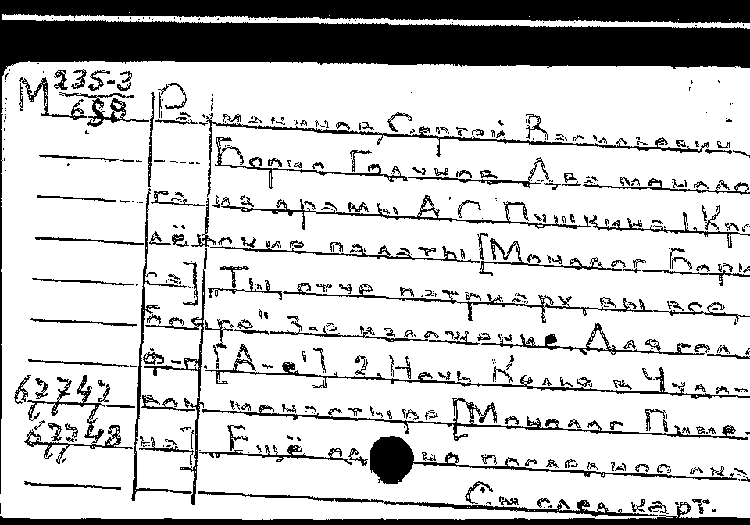 М 235-3
688
Рахманинов, Сергей Васильевич
Борис Годунов. Два моноло
га из драмы А.С. Пушкина 1. Кре
лёвские палаты [Монолог Бори
са] „Ты, отче патриарх, вы все,
бояре" 3-е изложение. Для гол
ф-п. [А-е']. 2. Ночь Келья в Чудо
67747 вом монастыре [Монолог Пиме-
67748 на] „Ещё одно последнее ска
См. след. карт.